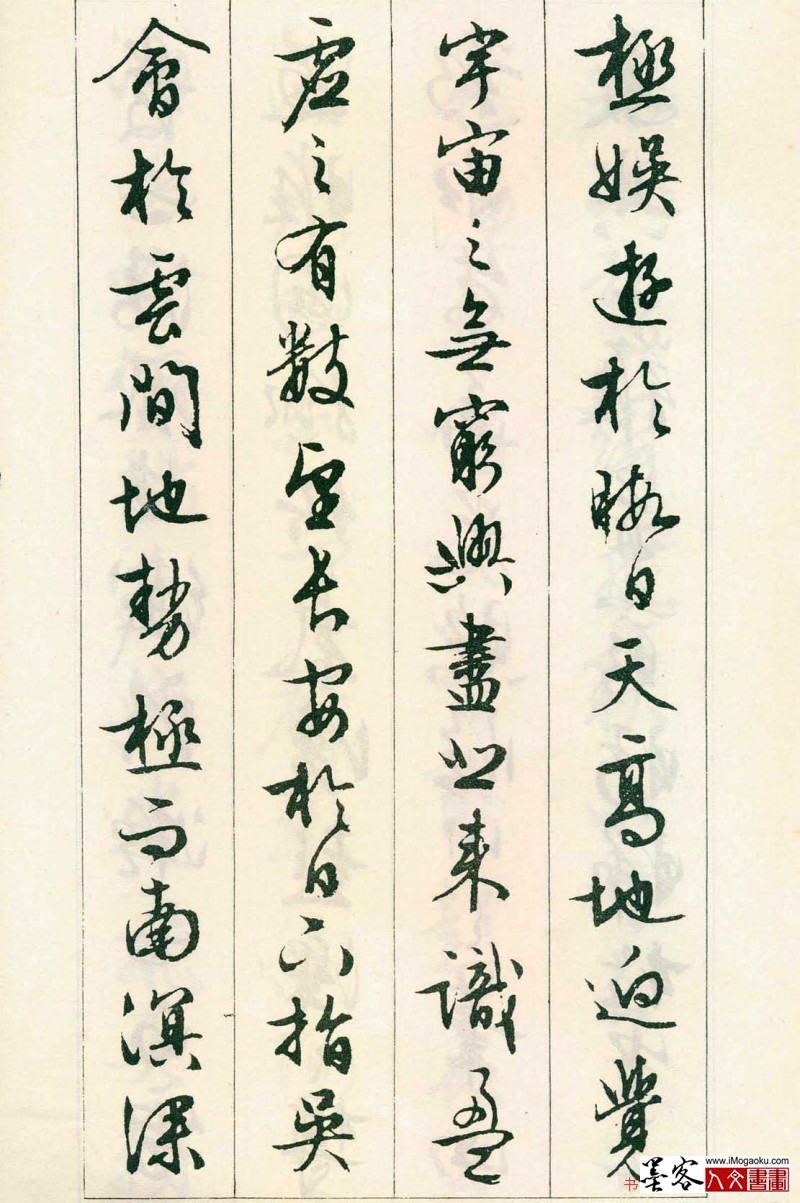 極娛遊於暇日天高地迫覺
宇宙之無窮興盡悲來識盈
虛之有數望長安於日下指吳
會於雲間地勢極而南溟深
www.iMogaoku.com
书 墨客 人文書畫